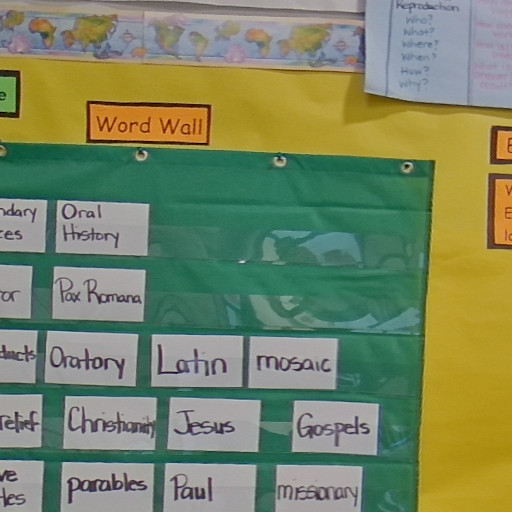 Reproduction
Who?
What?
Where?
When?
How?
Why?
e
Word Wall
E
ndary
ces
Oral
History
or
Pax Romana
ducts
Oratory
Latin
mosaic
relief
Christianity
Jesus
Gospels
ve
les
parables
Paul
missionary